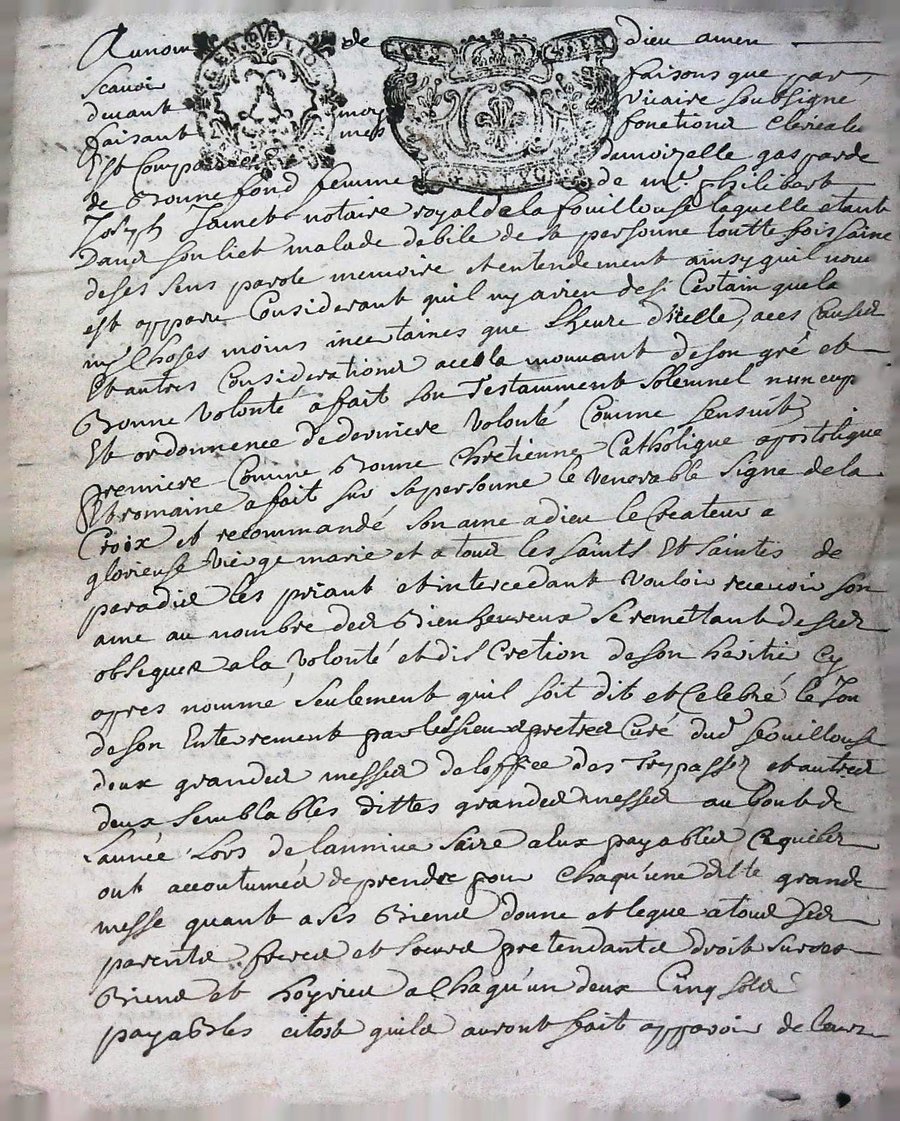 Au nom de dieu amen
Scavoir faisons que par
devant moy vicaire soubsigné
faisant mes fonctions clericales
Est Comparue damoizelle gasparde
de Bonnefond femme de mr. philibert
Joseph Jamet notaire royal de la fouillouse laquelle etant
Dans son liet malade debile de sa personne toutte fois saine
de ses sens parole memoire et entendement ainsy quil nous
est apparu Considerant quil ny a rien de si Certain que la
mort choses moins incertaines que lheure dicelle, a ces Causes
Et autres Considerations a celle mouvant de son gré et
Bonne volonté a fait son Testamment Solemnel nuncup
Et ordonnence de derniere volonté Comme sensuit
premiere Comme Bonne Chretienne Catholique apostolique
Et romaine a fait sur sa personne le venerable signe de la
Croix et recommandé son ame a dieu le Createur a
glorieuse vierge marie et a tous les saints Et saintes de
paradis les priant et intercedant vouloir recevoir son
ame au nombre des Bien heureux se remettant de ses
obseques a la volonté et discretion de son heritié cy
apres nommé, seulement quil soit dit et Celebré le Jour
de son Enterrement par les sieurs pretres Curé dud feouillouse
deux grandes messes de loffice des Trepassez et autres
deux semblables dittes grandes messes au bout de
lannée Lors de lannive saire a eux payables Cequils
ont accoutumés de prendre pour chaqu'une ditte grande
messe quant a ses Biens donne et legue a tous ses
parents freres et soeurs pretendants droit sur ses
Biens et hoyries a chaqu'un deux Cinq sols
payables aitost quils auront fait apparoir de leurs